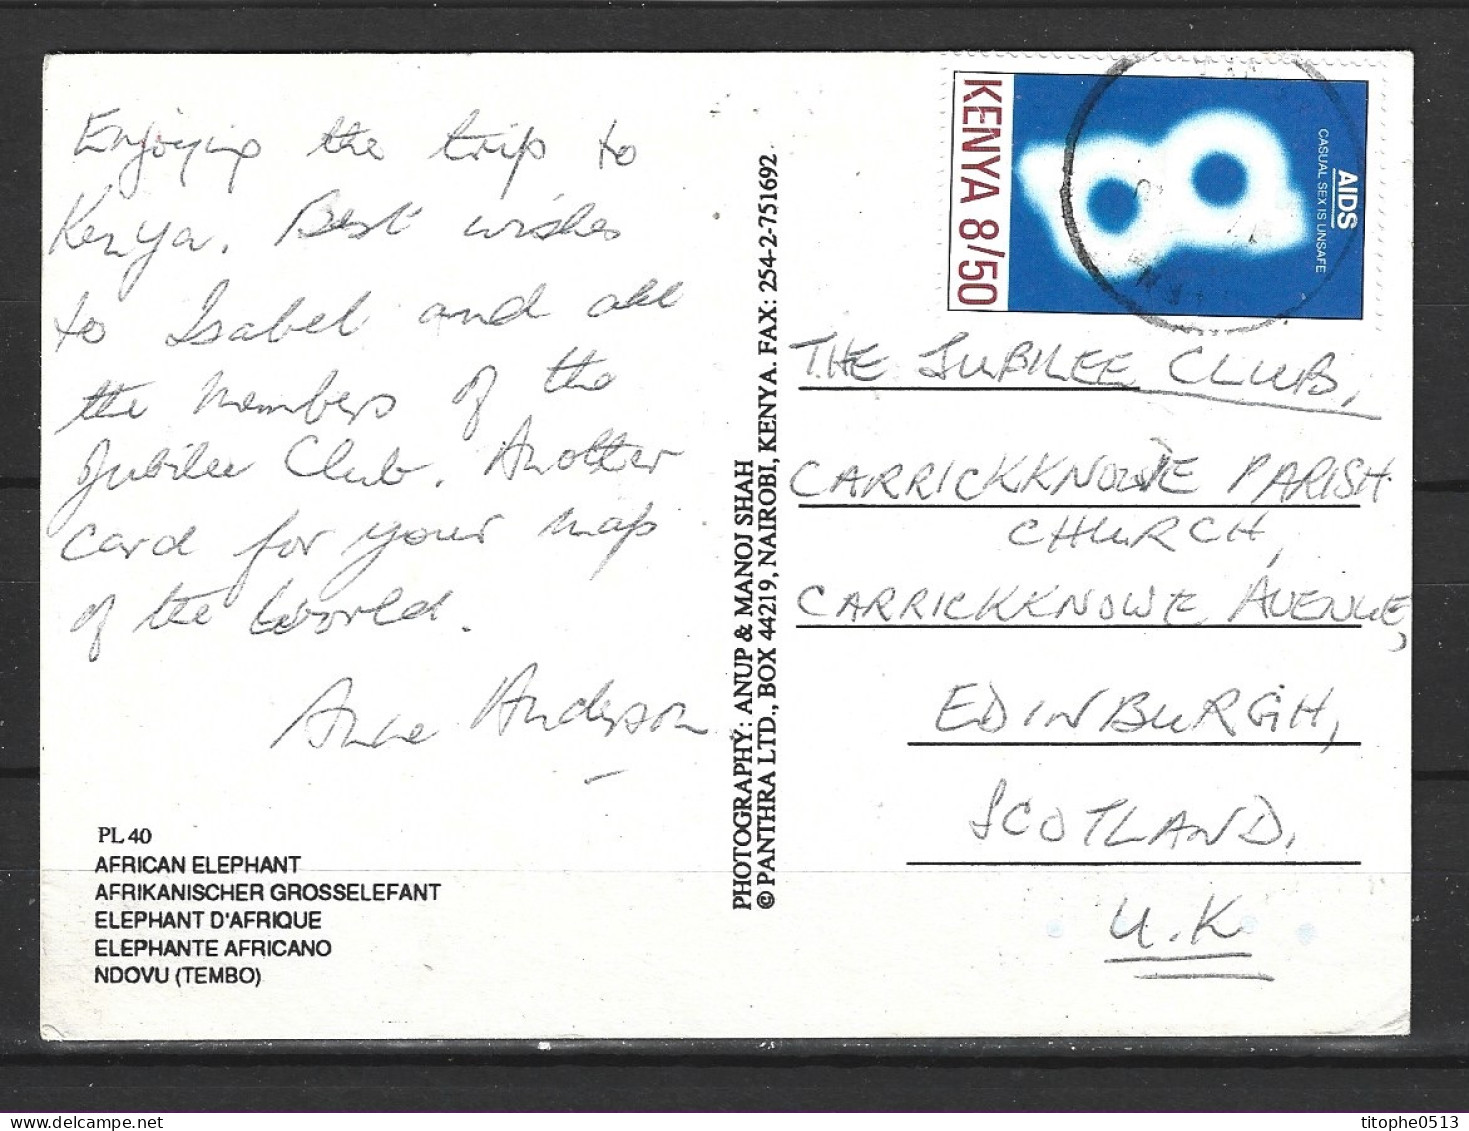 Enjoying the trip to
Kenya. Best wishes
to Isabel and all
the members of the
Jubilee Club. Another
card for your map
of the World.
Anne Anderson
PL 40
AFRICAN ELEPHANT
AFRIKANISCHER GROSSELEFANT
ELEPHANT D'AFRIQUE
ELEPHANTE AFRICANO
NDOVU (TEMBO)
PHOTOGRAPHY: ANUP & MANOJ SHAH
© PANTHRA LTD., BOX 44219, NAIROBI, KENYA. FAX: 254-2-751692
KENYA 8/50
AIDS
CASUAL SEX IS UNSAFE
THE JUBILEE CLUB,
CARRICKKNOWE PARISH
CHURCH,
CARRICKKNOWE AVENUE,
EDINBURGH,
SCOTLAND,
U.K
titophe0513